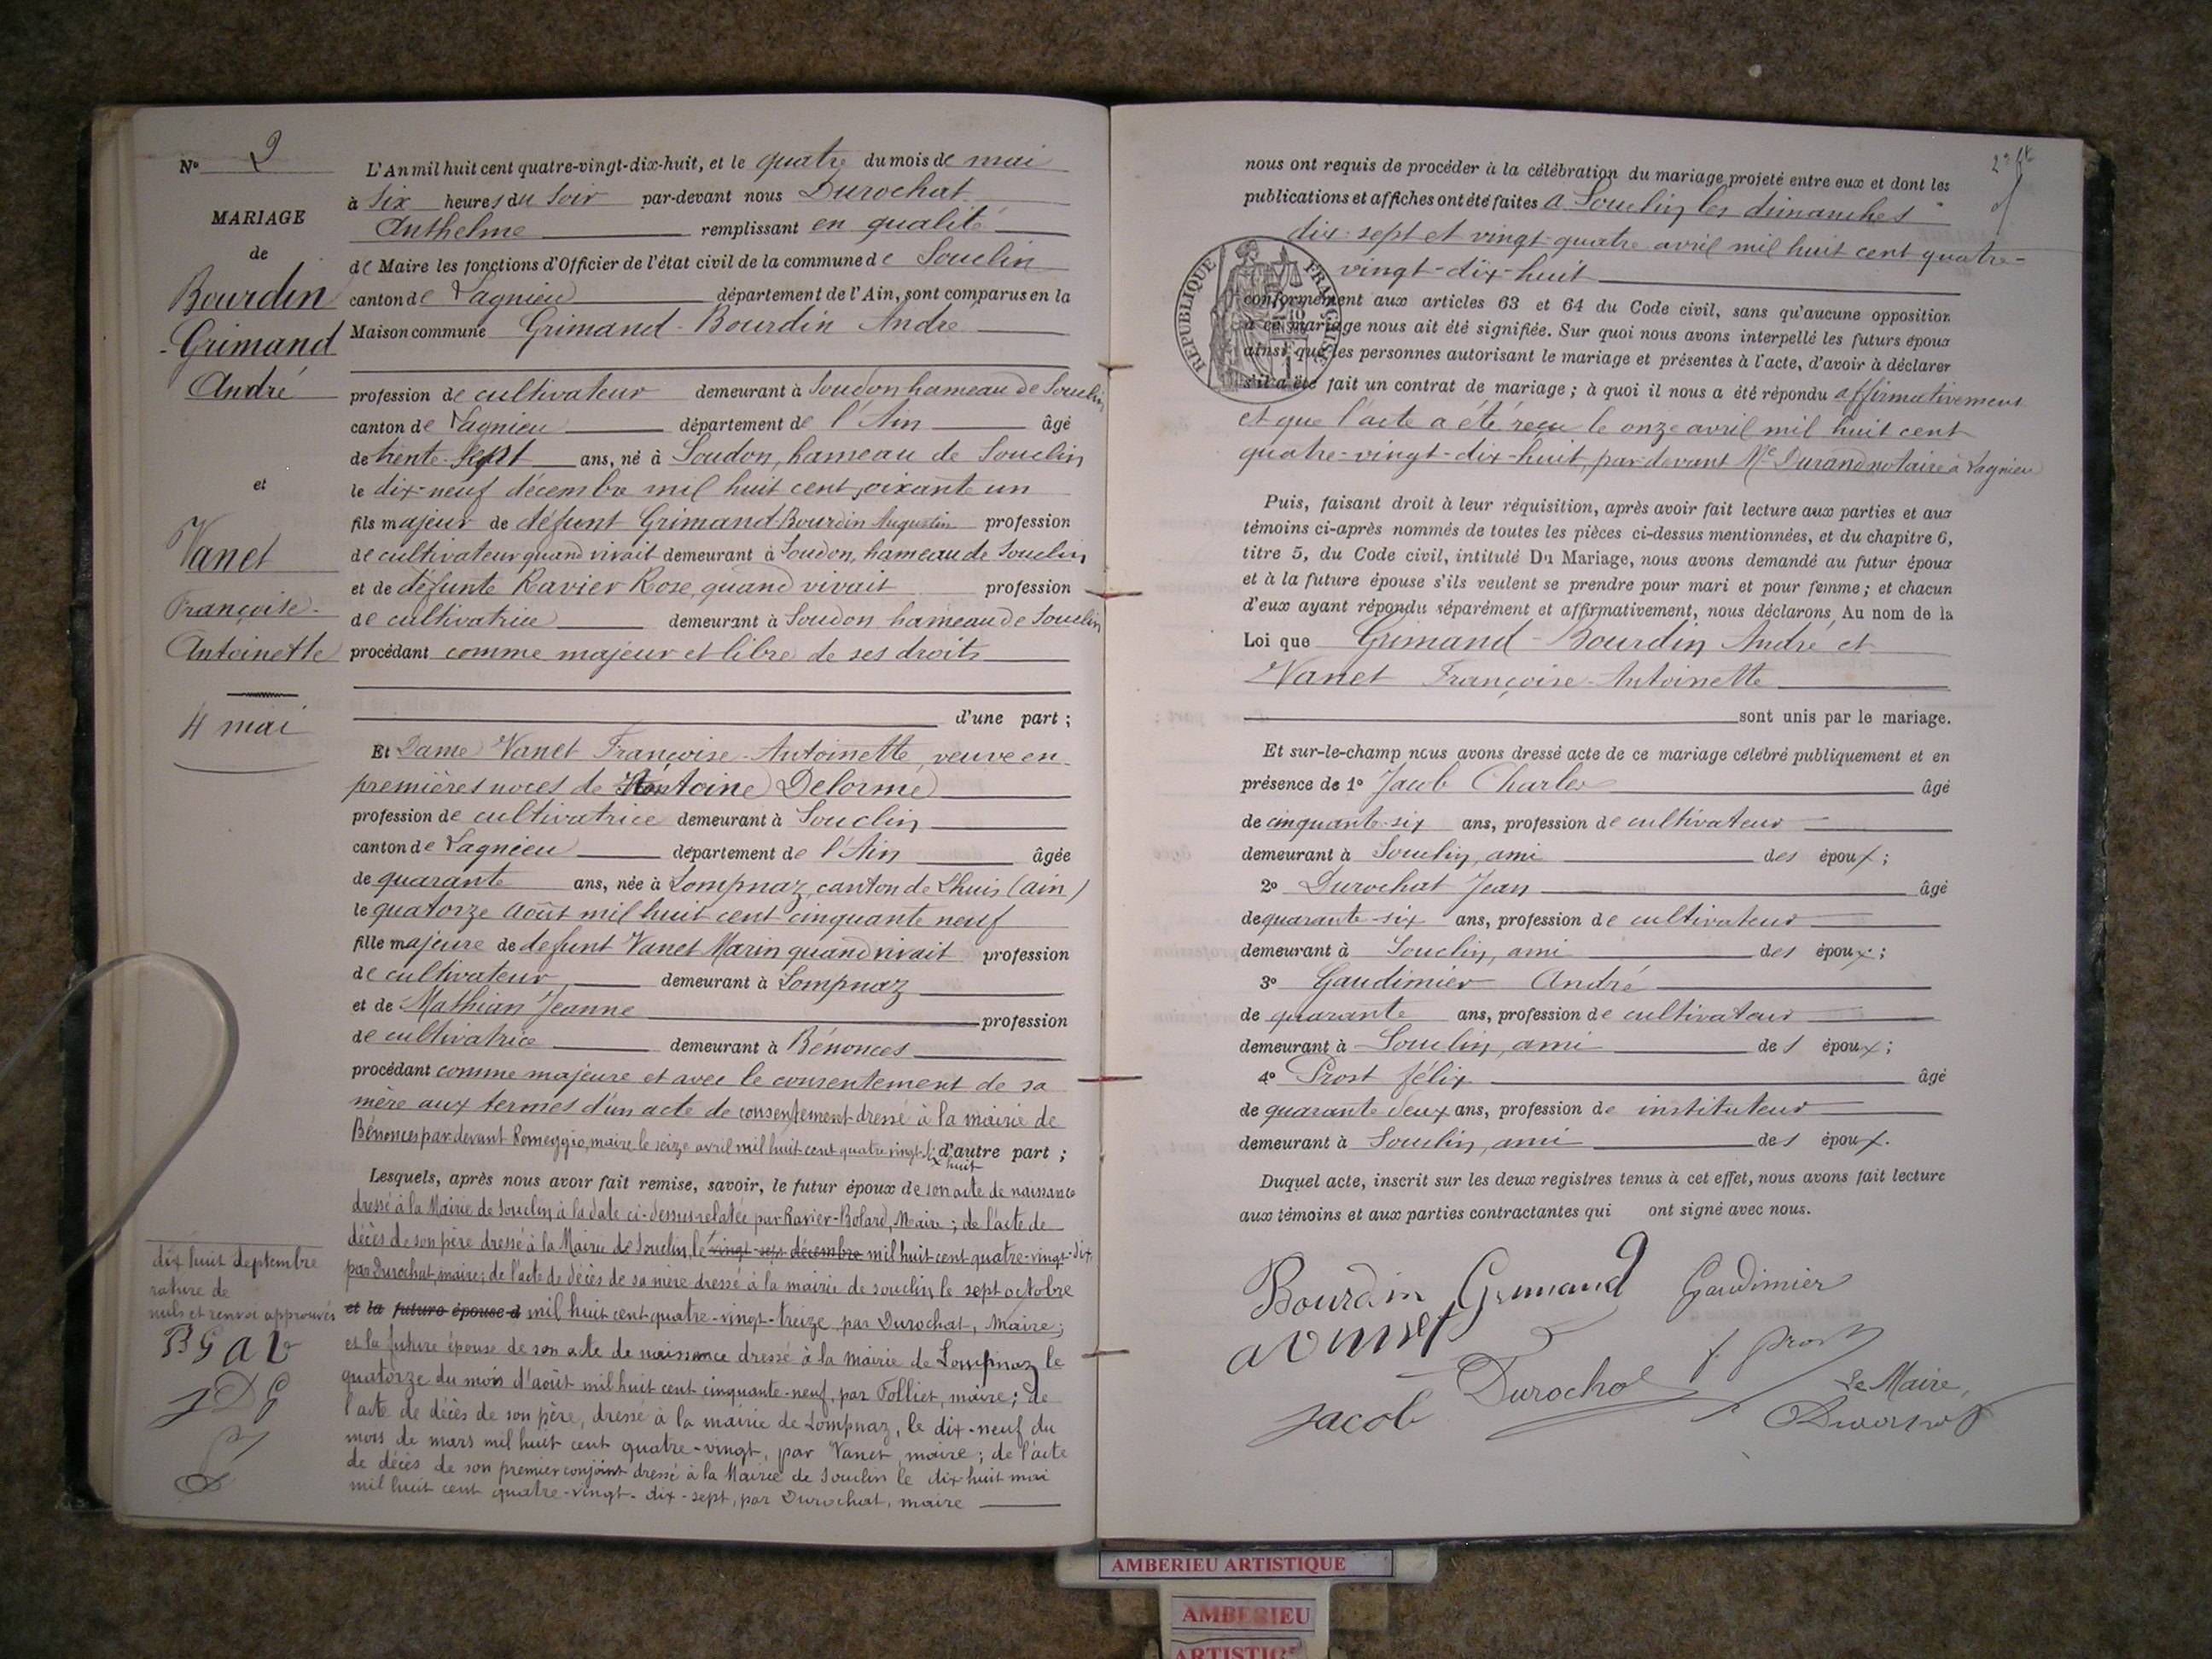 N° 2
MARIAGE
de
Bourdin
-Grimand
André
et
Vanet
Françoise-
Antoinette
4 mai
L'An mil huit cent quatre-vingt-dix-huit, et le quatre du mois de mai
à six heures du soir par-devant nous Durochat
Anthelme remplissant en qualité
de Maire les fonctions d'Officier de l'état civil de la commune de Souclin
canton de Lagnieu département de l'Ain, sont comparus en la
Maison commune Grimand-Bourdin André
profession de cultivateur demeurant à Soudon hameau de Souclin
canton de Lagnieu département de l'Ain âgé
de trente-sept ans, né à Soudon, hameau de Souclin
le dix-neuf décembre mil huit cent soixante un
fils majeur de défunt Grimand-Bourdin Augustin profession
de cultivateur quand vivait demeurant à Soudon, hameau de Souclin
et de défunte Ravier Rose, quand vivait profession
de cultivatrice demeurant à Soudon hameau de Souclin
procédant comme majeur et libre de ses droits
d'une part ;
Et Dame Vanet Françoise-Antoinette, veuve en
premières noces de Antoine Delorme
profession de cultivatrice demeurant à Souclin
canton de Lagnieu département de l'Ain âgée
de quarante ans, née à Lompnaz, canton de Lhuis (ain)
le quatorze août mil huit cent cinquante neuf
fille majeure de defunt Vanet Marin quand vivait profession
de cultivateur demeurant à Lompnaz
et de Mathian Jeanne profession
de cultivatrice demeurant à Bénonces
procédant comme majeure et avec le consentement de sa
mère aux termes d'un acte de consentement dressé à la mairie de
Bénonces par devant Romeggio, maire, le seize avril mil huit cent quatre vingt dix huit d'autre part ;
Lesquels, après nous avoir fait remise, savoir, le futur époux de son acte de naissance
dressé à la Mairie de Souclin à la date ci-dessus relatée par Ravier-Bolard, Maire ; de l'acte de
décès de son père dressé à la Mairie de Souclin, le vingt-sept décembre mil huit cent quatre-vingt-dix,
par Durochat, maire ; de l'acte de décès de sa mère dressé à la mairie de Souclin le sept octobre
et la future épouse d mil huit cent-quatre-vingt-treize par Durochat, Maire ;
et la future épouse de son acte de naissance dressé à la mairie de Lompnaz le
quatorze du mois d'août mil huit cent cinquante-neuf, par Folliet, maire ; de
l'acte de décès de son père, dressé à la mairie de Lompnaz, le dix-neuf du
mois de mars mil huit cent quatre-vingt, par Vanet, maire ; de l'acte
de décès de son premier conjoint dressé à la Mairie de Souclin le dix-huit mai
mil huit cent quatre-vingt-dix-sept, par Durochat, maire
dix huit septembre
rature de
nuls et renvoi approuvés
B G A V
J D G
nous ont requis de procéder à la célébration du mariage projeté entre eux et dont les
publications et affiches ont été faites à Souclin les dimanches
dix-sept et vingt-quatre avril mil huit cent quatre-
vingt-dix-huit
RÉPUBLIQUE FRANÇAISE
conformément aux articles 63 et 64 du Code civil, sans qu'aucune opposition
à ce mariage nous ait été signifiée. Sur quoi nous avons interpellé les futurs époux
ainsi que les personnes autorisant le mariage et présentes à l'acte, d'avoir à déclarer
s'il a été fait un contrat de mariage ; à quoi il nous a été répondu affirmativement
et que l'acte a été reçu le onze avril mil huit cent
quatre-vingt-dix-huit, par devant Me Durand notaire à Lagnieu
Puis, faisant droit à leur réquisition, après avoir fait lecture aux parties et aux
témoins ci-après nommés de toutes les pièces ci-dessus mentionnées, et du chapitre 6,
titre 5, du Code civil, intitulé Du Mariage, nous avons demandé au futur époux
et à la future épouse s'ils veulent se prendre pour mari et pour femme ; et chacun
d'eux ayant répondu séparément et affirmativement, nous déclarons Au nom de la
Loi que Grimand-Bourdin André et
Vanet Françoise-Antoinette
sont unis par le mariage.
Et sur-le-champ nous avons dressé acte de ce mariage célébré publiquement et en
présence de 1° Jacob Charles âgé
de cinquante-six ans, profession de cultivateur
demeurant à Souclin, ami des époux ;
2° Durochat Jean âgé
de quarante-six ans, profession de cultivateur
demeurant à Souclin, ami des époux ;
3° Gaudimier André
de quarante ans, profession de cultivateur
demeurant à Souclin, ami des époux ;
4° Prost félix âgé
de quarante deux ans, profession de instituteur
demeurant à Souclin, ami des époux.
Duquel acte, inscrit sur les deux registres tenus à cet effet, nous avons fait lecture
aux témoins et aux parties contractantes qui ont signé avec nous.
Bourdin Grimand Gaudimier
a vanet f. Prost
Durochat Le Maire,
Jacob Durochat
AMBERIEU ARTISTIQUE
AMBERIEU
ARTISTIQUE